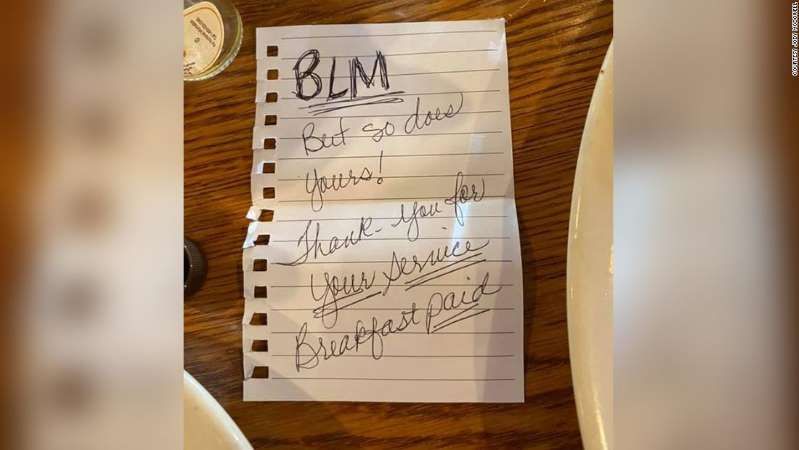 BLM
But so does
yours!
Thank-you for
your service
Breakfast paid
COURTESY JODY MCDOWELL